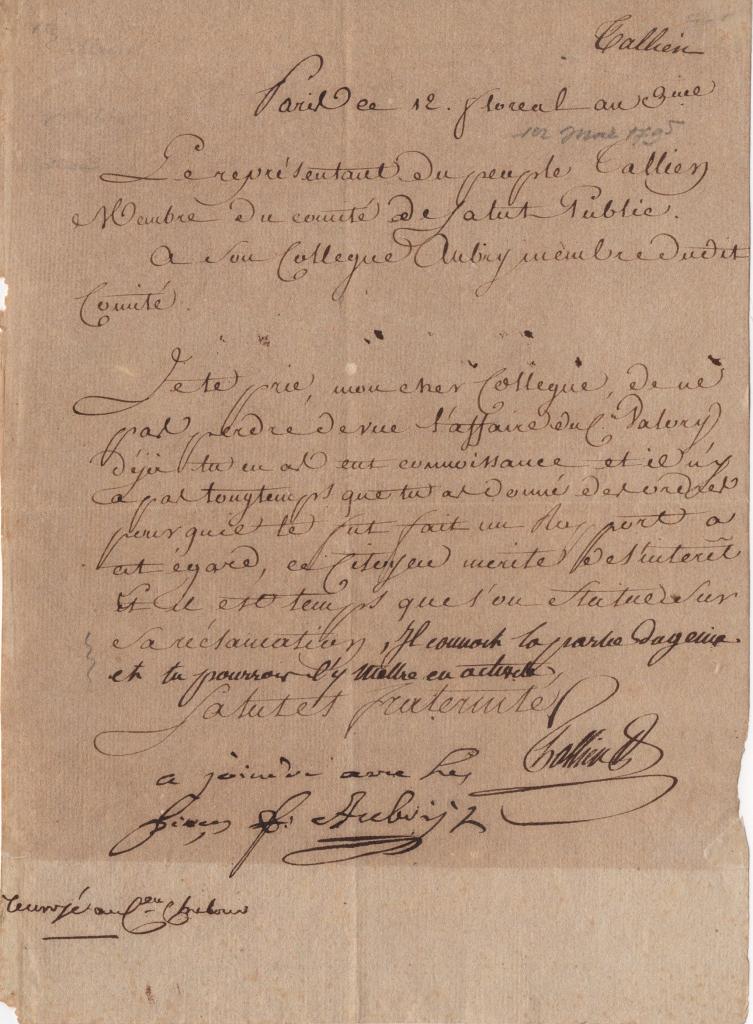 Tallien
Paris ce 12. floreal an 3me
1er Mai 1795
Le représentant du peuple Tallien
Membre du comité de Salut Public.
a son Collegue Aubry membre dudit
Comité.
Je te prie, mon cher Collegue, de ne
pas perdre de vue l'affaire du Cn. Valory
déjà tu en as eut connoissance et il n'y
a pas longtemps que tu as donné des ordres
pour qu'il te fut fait un Rapport a
cet égard, ce Citoyen merite de l'interêt
Et il est temps que l'on statue sur
sa réclamation, Il connoit la partie du genie
et tu pourrois l'y mettre en activité
Salut et fraternité
Tallien
a joindre avec les
pieces f. Aubry
renvoyé au Cen